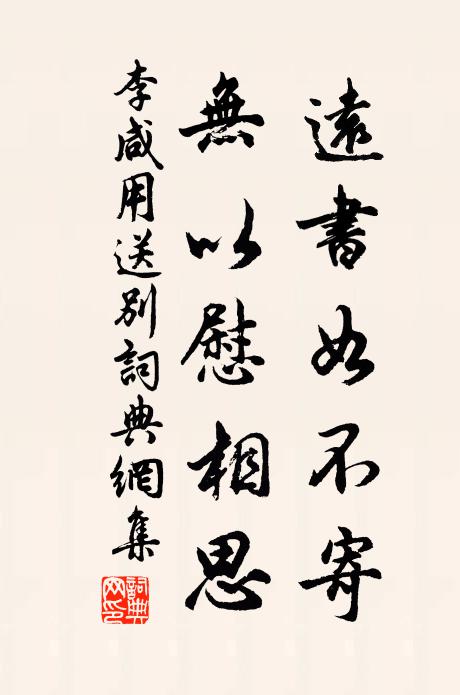 遠書如不寄
無以慰相思
李咸用送別詞典網集
詞典网印